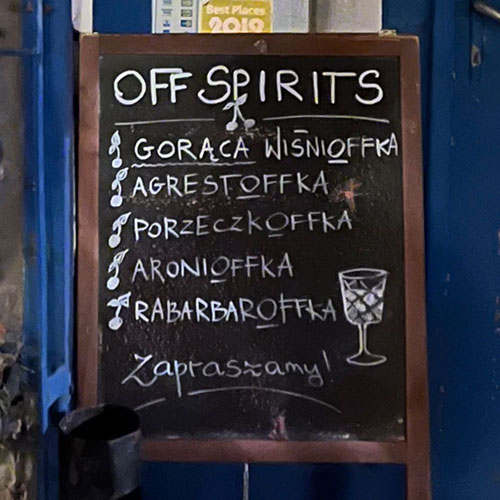 Best Places
2019
OFF SPIRITS
GORĄCA WIŚNIOFFKA
AGRESTOFFKA
PORZECZKOFFKA
ARONIOFFKA
RABARBAROFFKA
Zapraszamy!